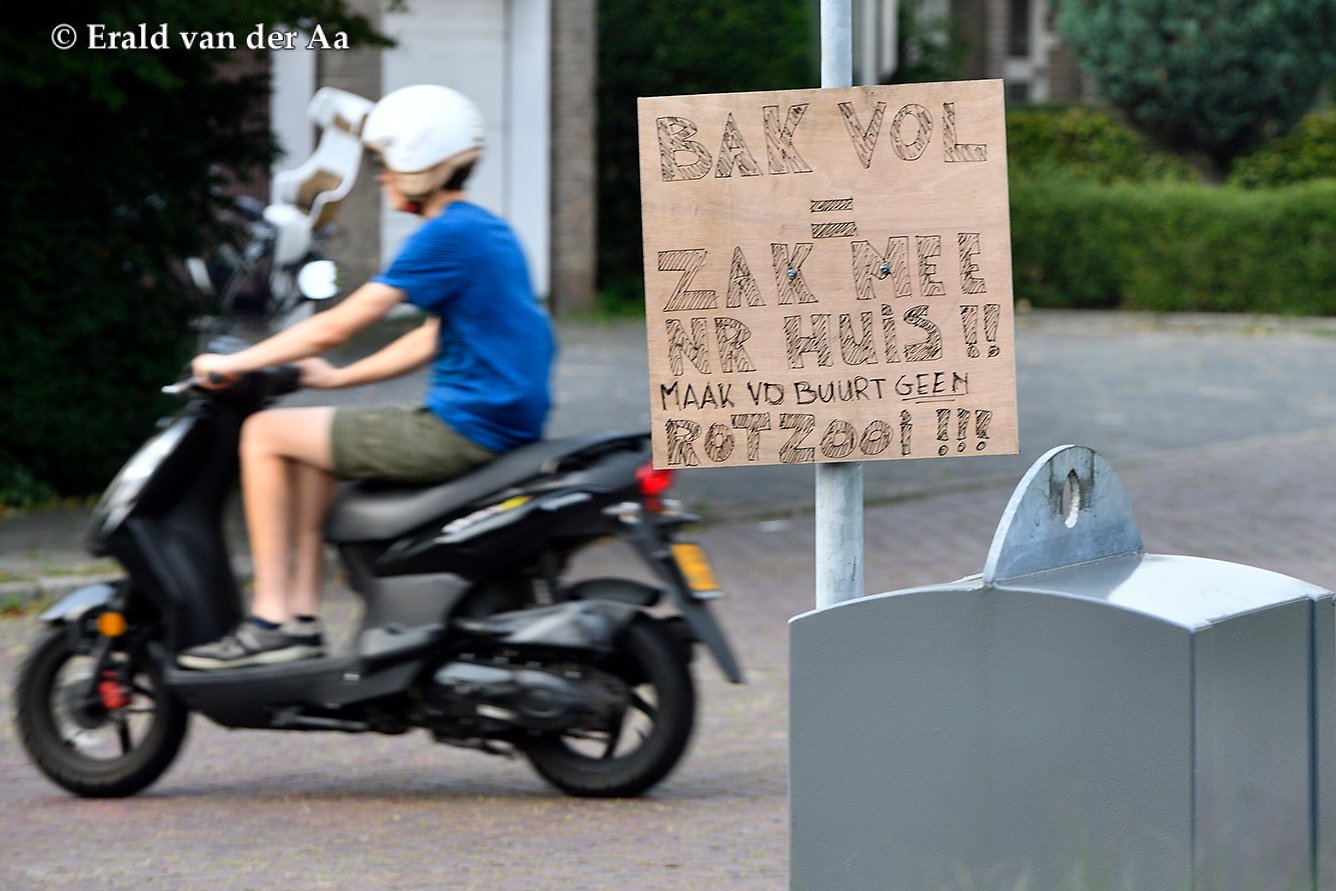 © Erald van der Aa
BAK VOL
=
ZAK MEE
NR HUiS !!
MAAK VD BUURT GEEN
ROTZOOi !!!